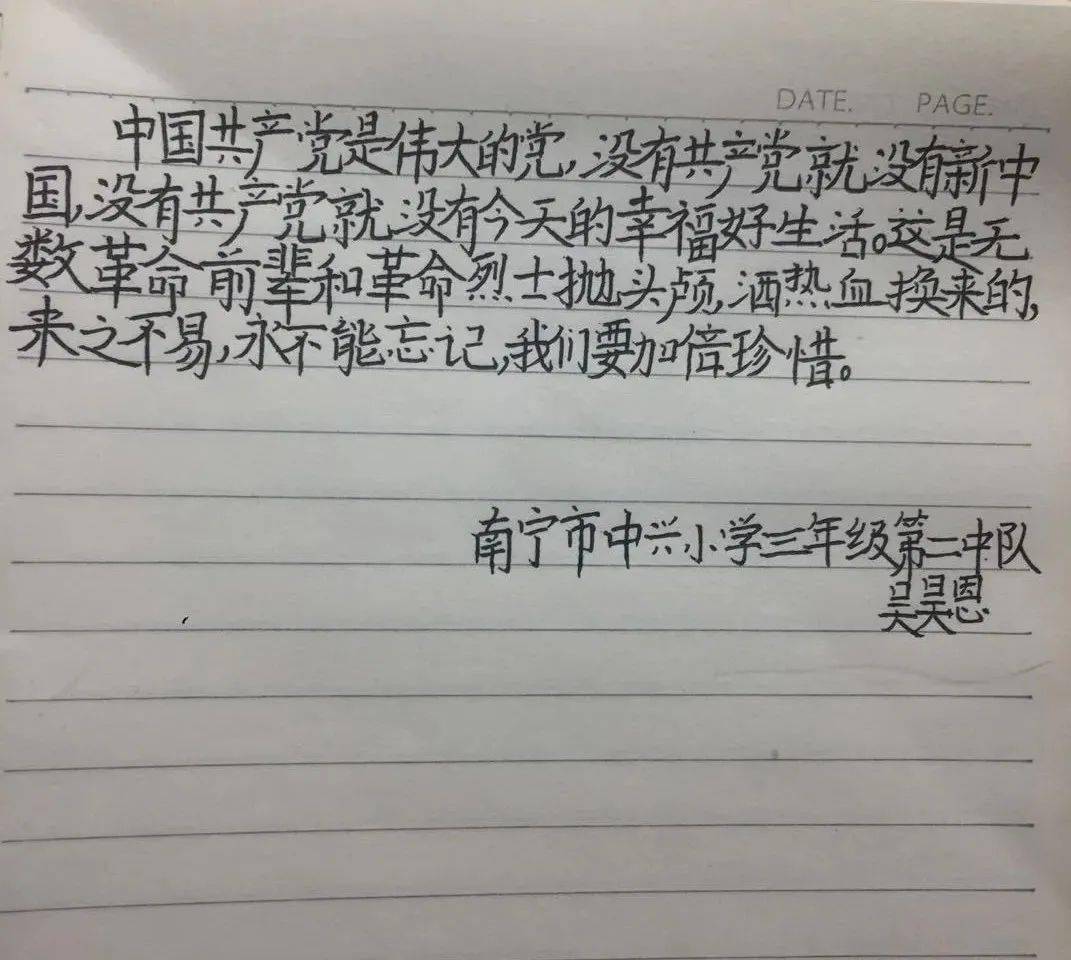 DATE. PAGE.
中国共产党是伟大的党,没有共产党就没有新中
国,没有共产党就没有今天的幸福好生活。这是无
数革命前辈和革命烈士抛头颅,洒热血换来的,
来之不易,永不能忘记,我们要加倍珍惜。
南宁市中兴小学三年级第二中队
吴昊恩